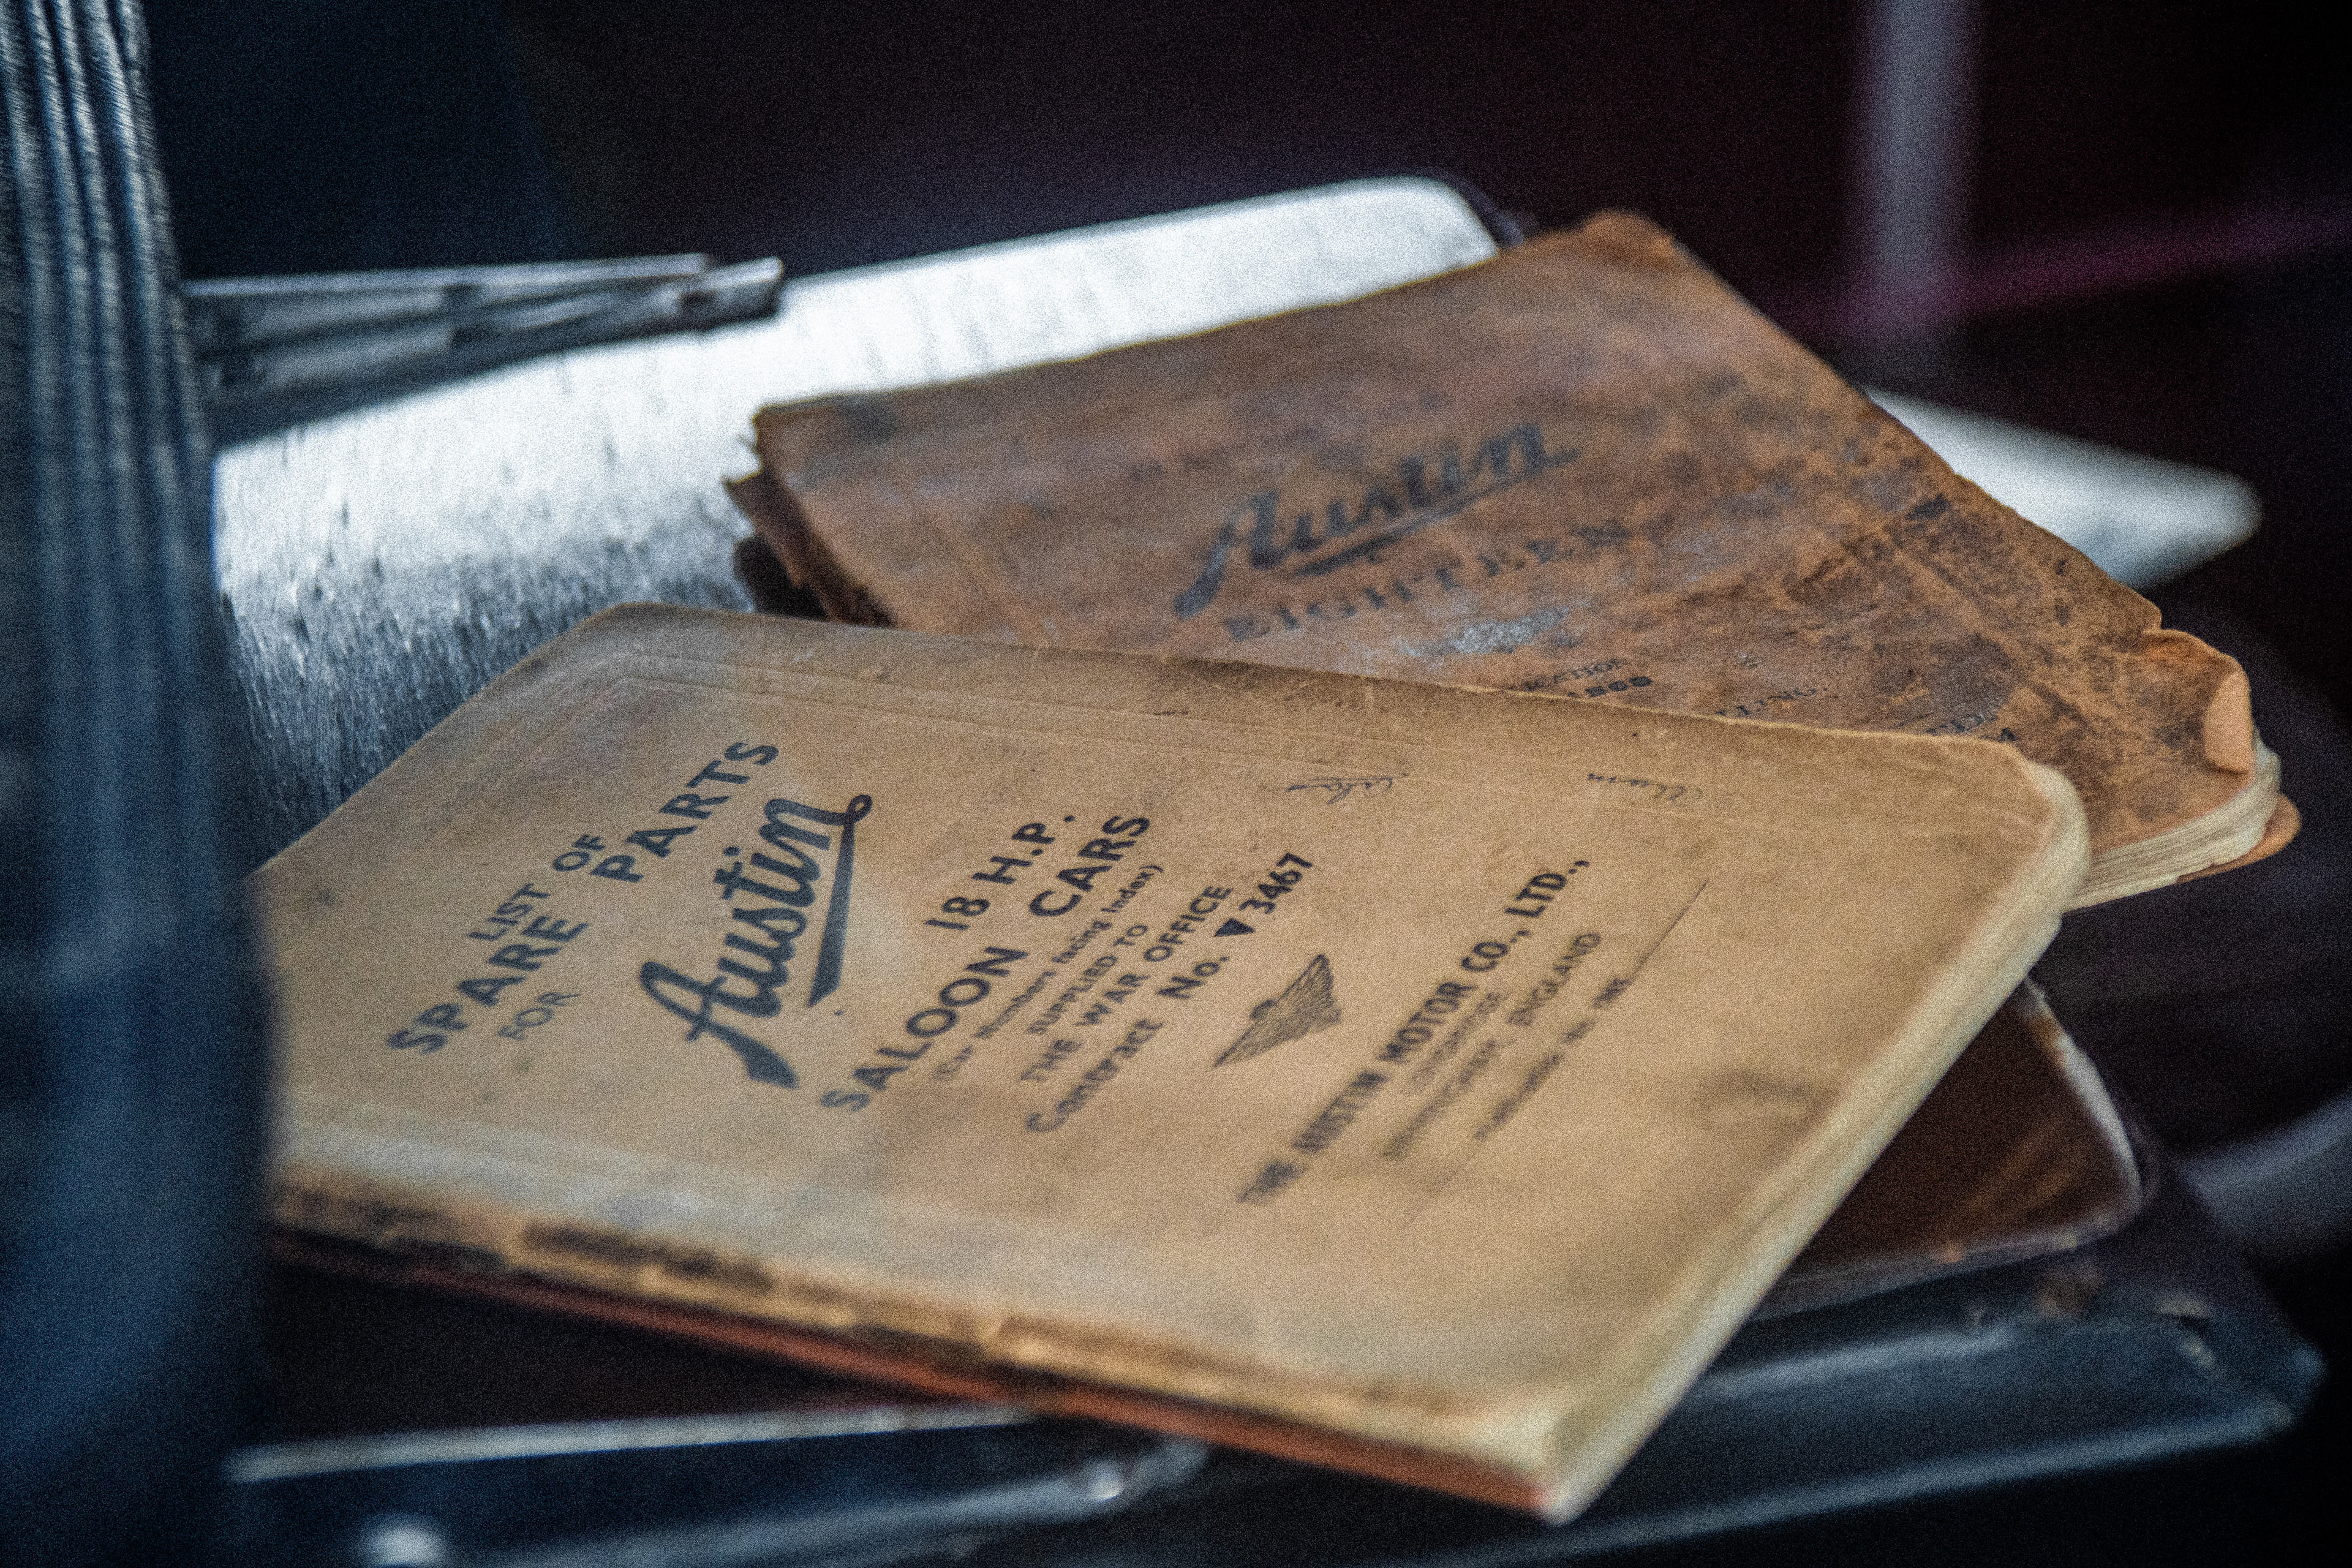 LIST OF
SPARE PARTS
FOR
Austin
18 H.P.
SALOON CARS
(Car Numbers facing Index)
SUPPLIED TO
THE WAR OFFICE
Contract No. ▼ 3467
THE AUSTIN MOTOR CO., LTD.,
LONGBRIDGE
BIRMINGHAM, ENGLAND
Austin
EIGHTEEN